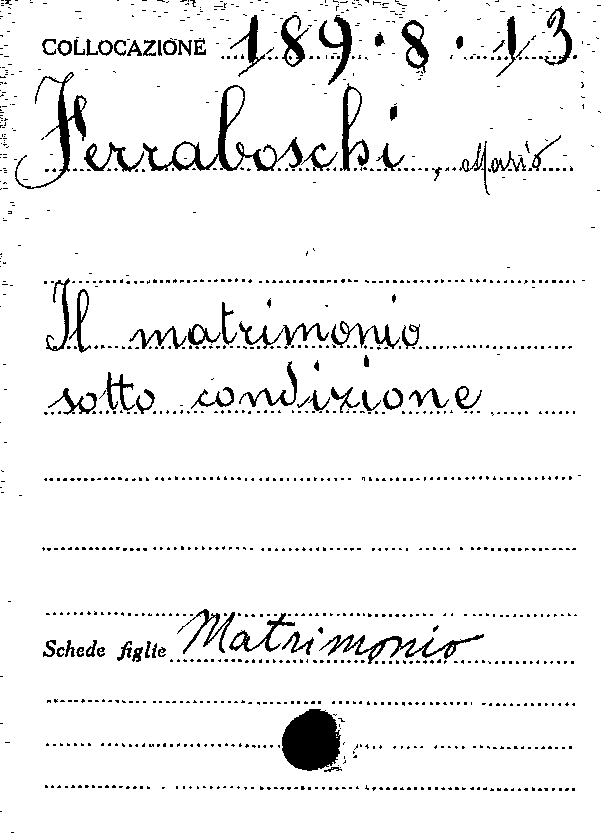 COLLOCAZIONE 189.8.13
Ferraboschi, Mario
Il matrimonio
sotto condizione
Schede figlie Matrimonio